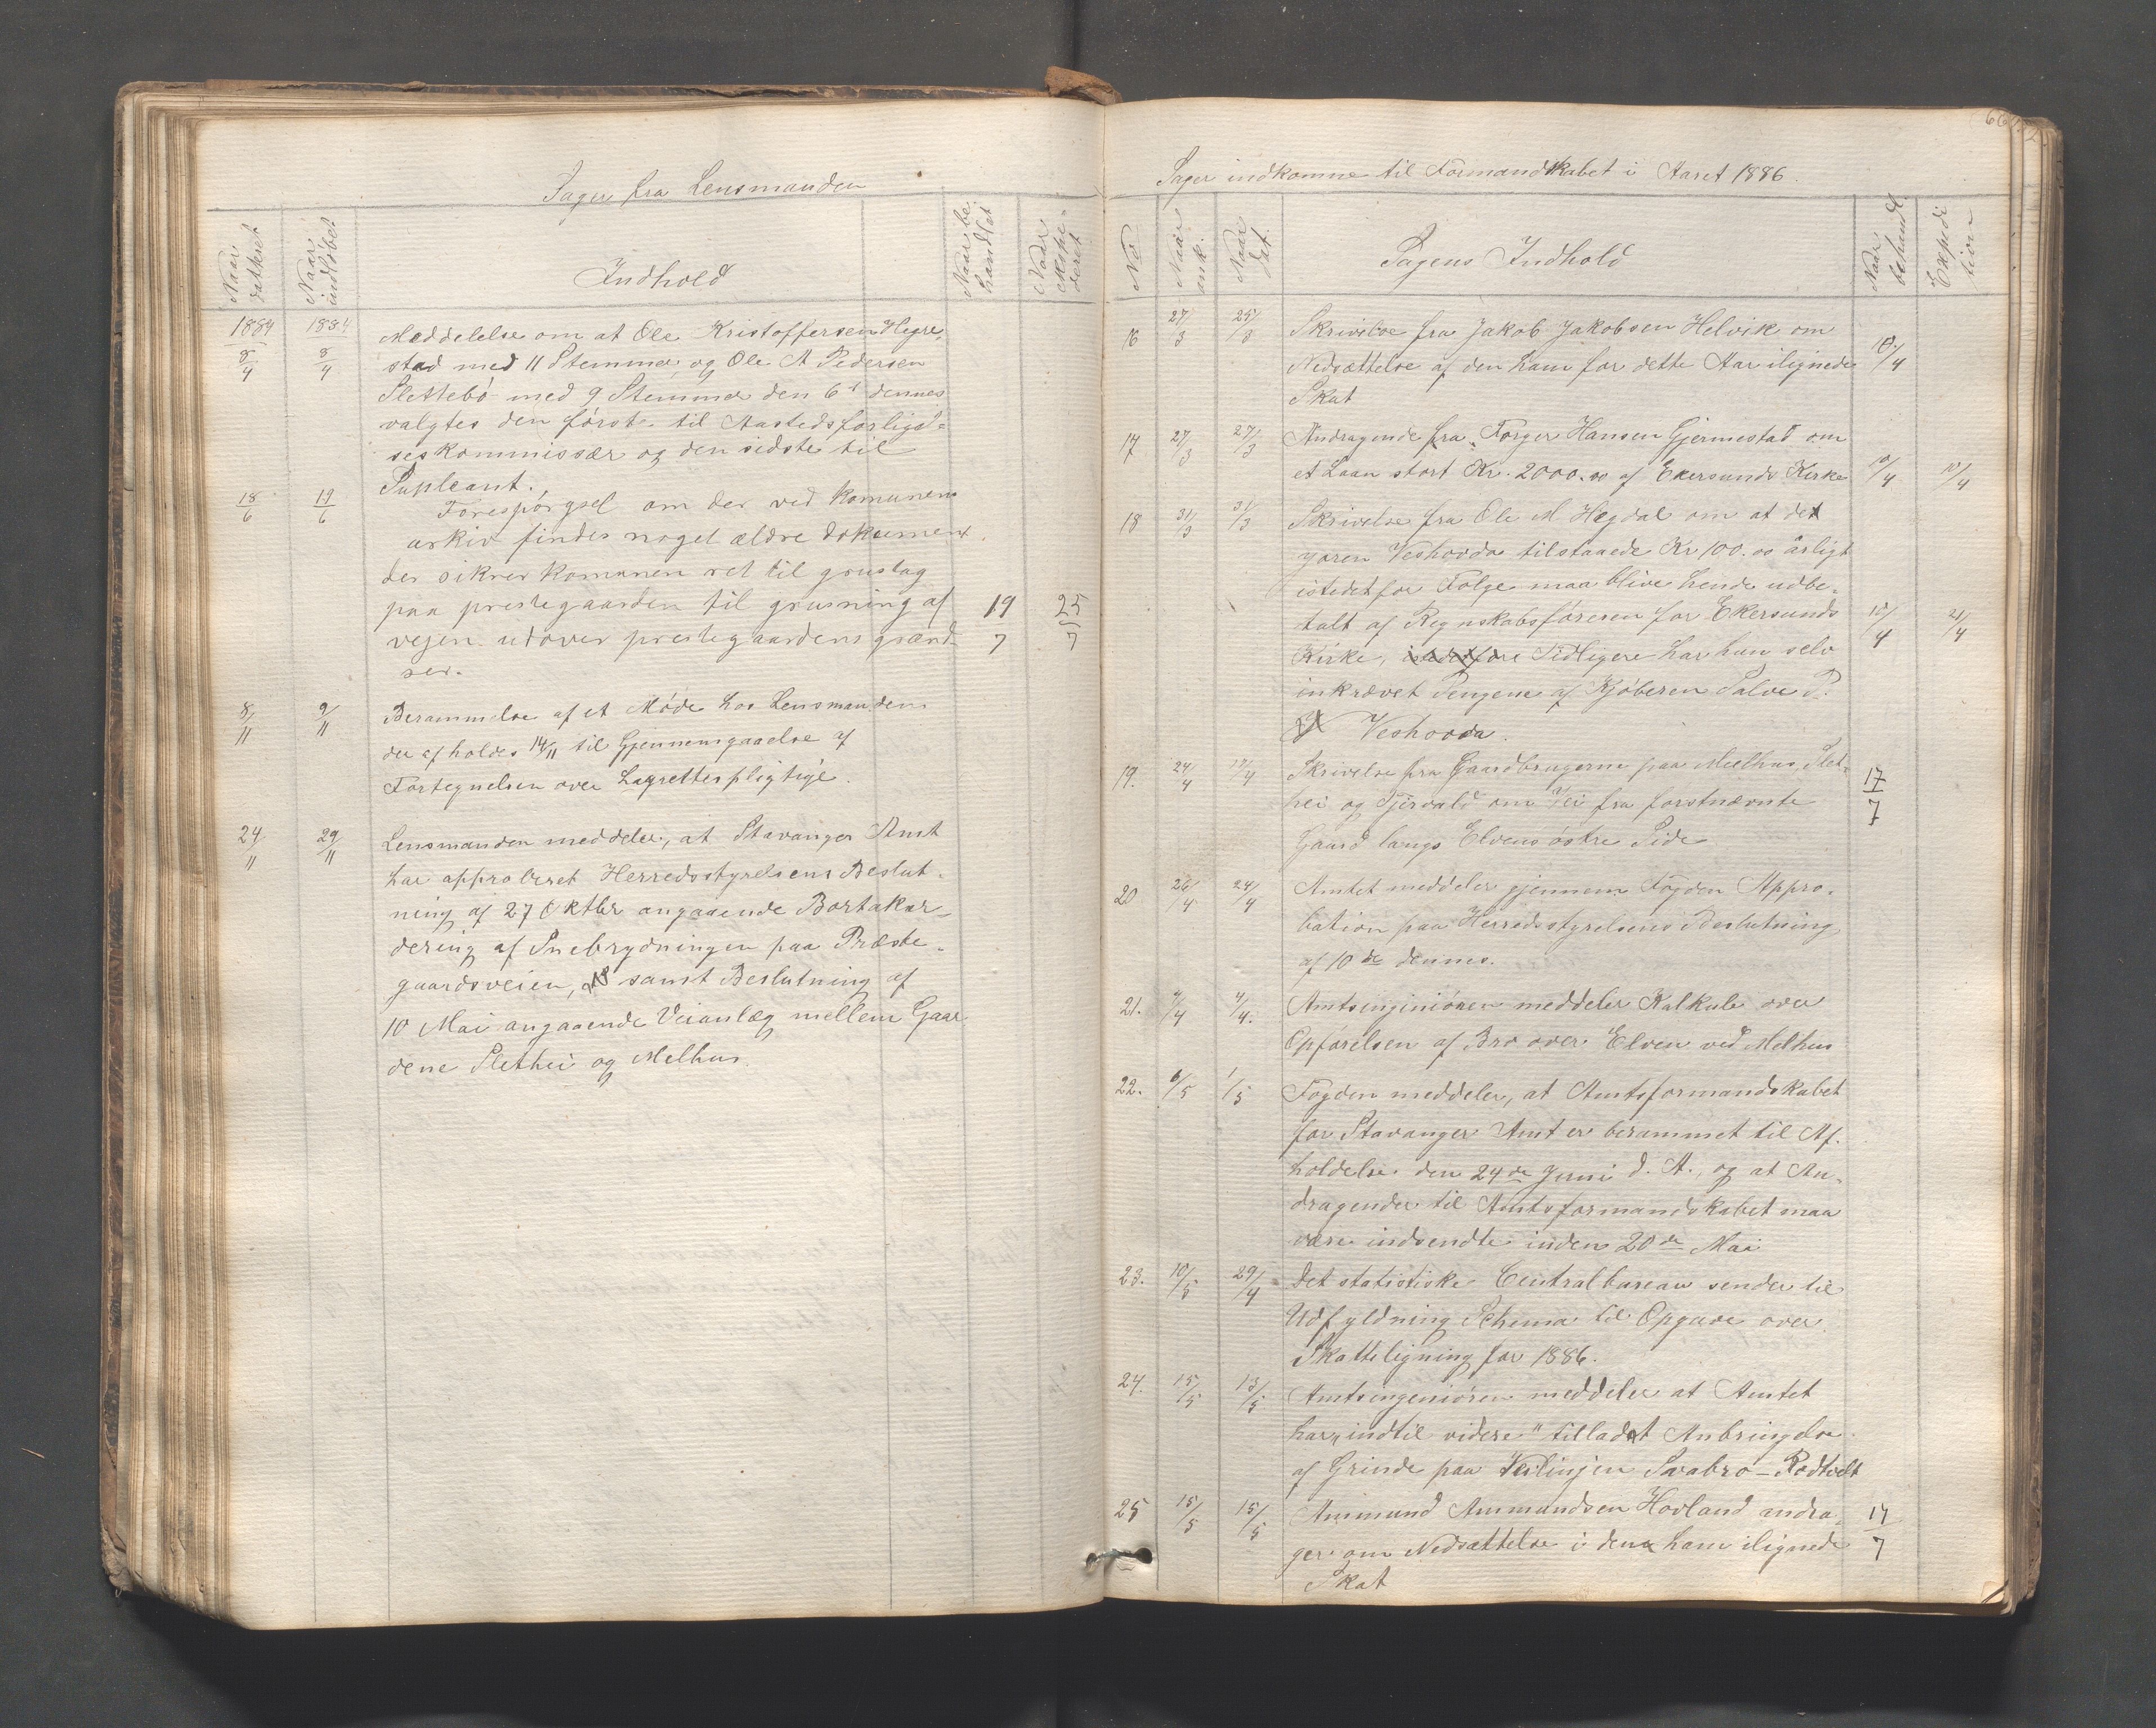 Sager fra Lensmanden
Naar datheret
Naar indløbet
Indhold
Naar behandlet
Naar ekspederet
1884 1884
8/4 8/4 Meddelelse om at Ole Kristoffersen Hegre-
stad med 11 Stemmer, og Ole A Pedersen
Slettebø med 9 Stemmer den 6te dennes
valgtes den først. til Aastedsforligel-
seskommissær og den sidste til
Supleant.
18/6 19/6 Forespørgsel om der ved komunens
arkiv findes noget ældre dokument
der sikrer komunen ret til grustag
paa prestegaarden til grusning af 19/7 25/7
vejen udover prestegaardens grænd-
ser.
8/11 9/11 Berammelse af et Møde hos Lensmanden
der afholdes 14/11 til Gjennemgaaelse af
Fortegnelsen over Lagrettespligtige.
24/11 29/11 Lensmanden meddeler, at Stavanger Amt
har approberet Herredsstyrelsens Beslut-
ning af 27 Oktbr angaaende Bortakor-
dering af Snebrydningen paa Præste-
gaardsveien, samt Beslutning af
10 Mai angaaende Veianlæg mellem Gaar-
dene Slethei og Melhus.
66
Sager indkomne til Formandskabet i Aaret 1886.
No
Naar ank.
Naar dat.
Sagens Indhold
Naar behandl.
Expedition
16 27/3 25/3 Skrivelse fra Jakob Jakobsen Helvik om
Nedsættelse af den ham for dette Aar ilignede 10/4
Skat
17 27/3 27/3 Andragende fra Torger Hansen Gjermestad om
et Laan stort Kr. 2000.00 af Ekersunds Kirke 10/4 10/4
18 31/3 31/3 Skrivelse fra Ole M Hegdal om at det
Veshovda tilstaaede Kr 100.00 årligt
istedetfor Følge maa blive hende udbe-
talt af Regnskabsføreren for Ekersunds 10/4 21/4
Kirke, Tidligere har hun selv
inkrævet Pengene af Kjøberen Salve P.
Veshovda.
19. 24/4 17/4 Skrivelse fra Gaardbrugerne paa Melhus, Slet- 17/7
hei og Tjørdald om Vei fra førstnævnte
Gaard langs Elvens østre Side
20 26/4 24/4 Amtet meddeler gjennem Fogden Appro-
bation paa Herredsstyrelsens Beslutning
af 10de dennes.
21. 4/4 4/4. Amtsinginiøren meddeler Kalkule over
Opførelsen af Bro over Elven ved Melhus
22. 6/5 1/5 Fogden meddeler, at Amtsformandskabet
for Stavanger Amt er berammet til Af-
holdelse den 24de Juni d. A., og at An-
dragender til Amtsformandskabet maa
være indsendte inden 20de Mai
23. 10/5 29/4 Det statistiske Centralbureau sender til
Udfyldning Schema til Opgave over
Skatteligning for 1886.
24. 15/5 13/5 Amtsingeniøren meddeler at Amtet
har „indtil videre" tilladt Anbringelse
af Grinde paa Veilinjen Svabro-Rødtvelt
25 15/5 15/5 Ammund Ammundsen Hovland andra- 17/7
ger om Nedsættelse i den ham ilignede
Skat